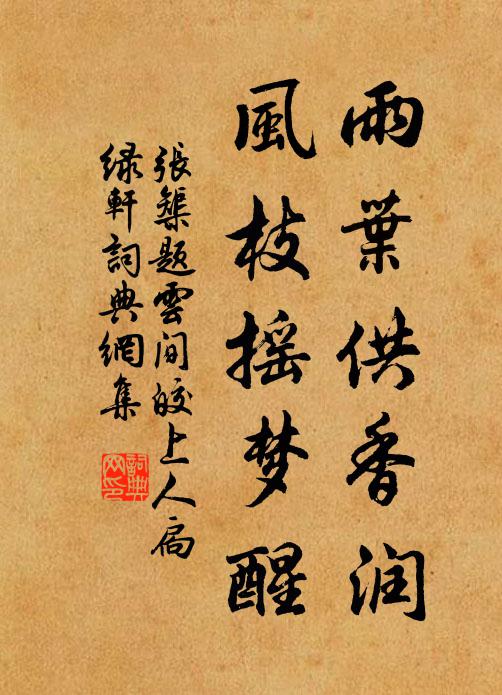 雨葉供香润
風枝摇梦醒
張榘题雲间皎上人扇
绿軒詞典網集
詞典网印